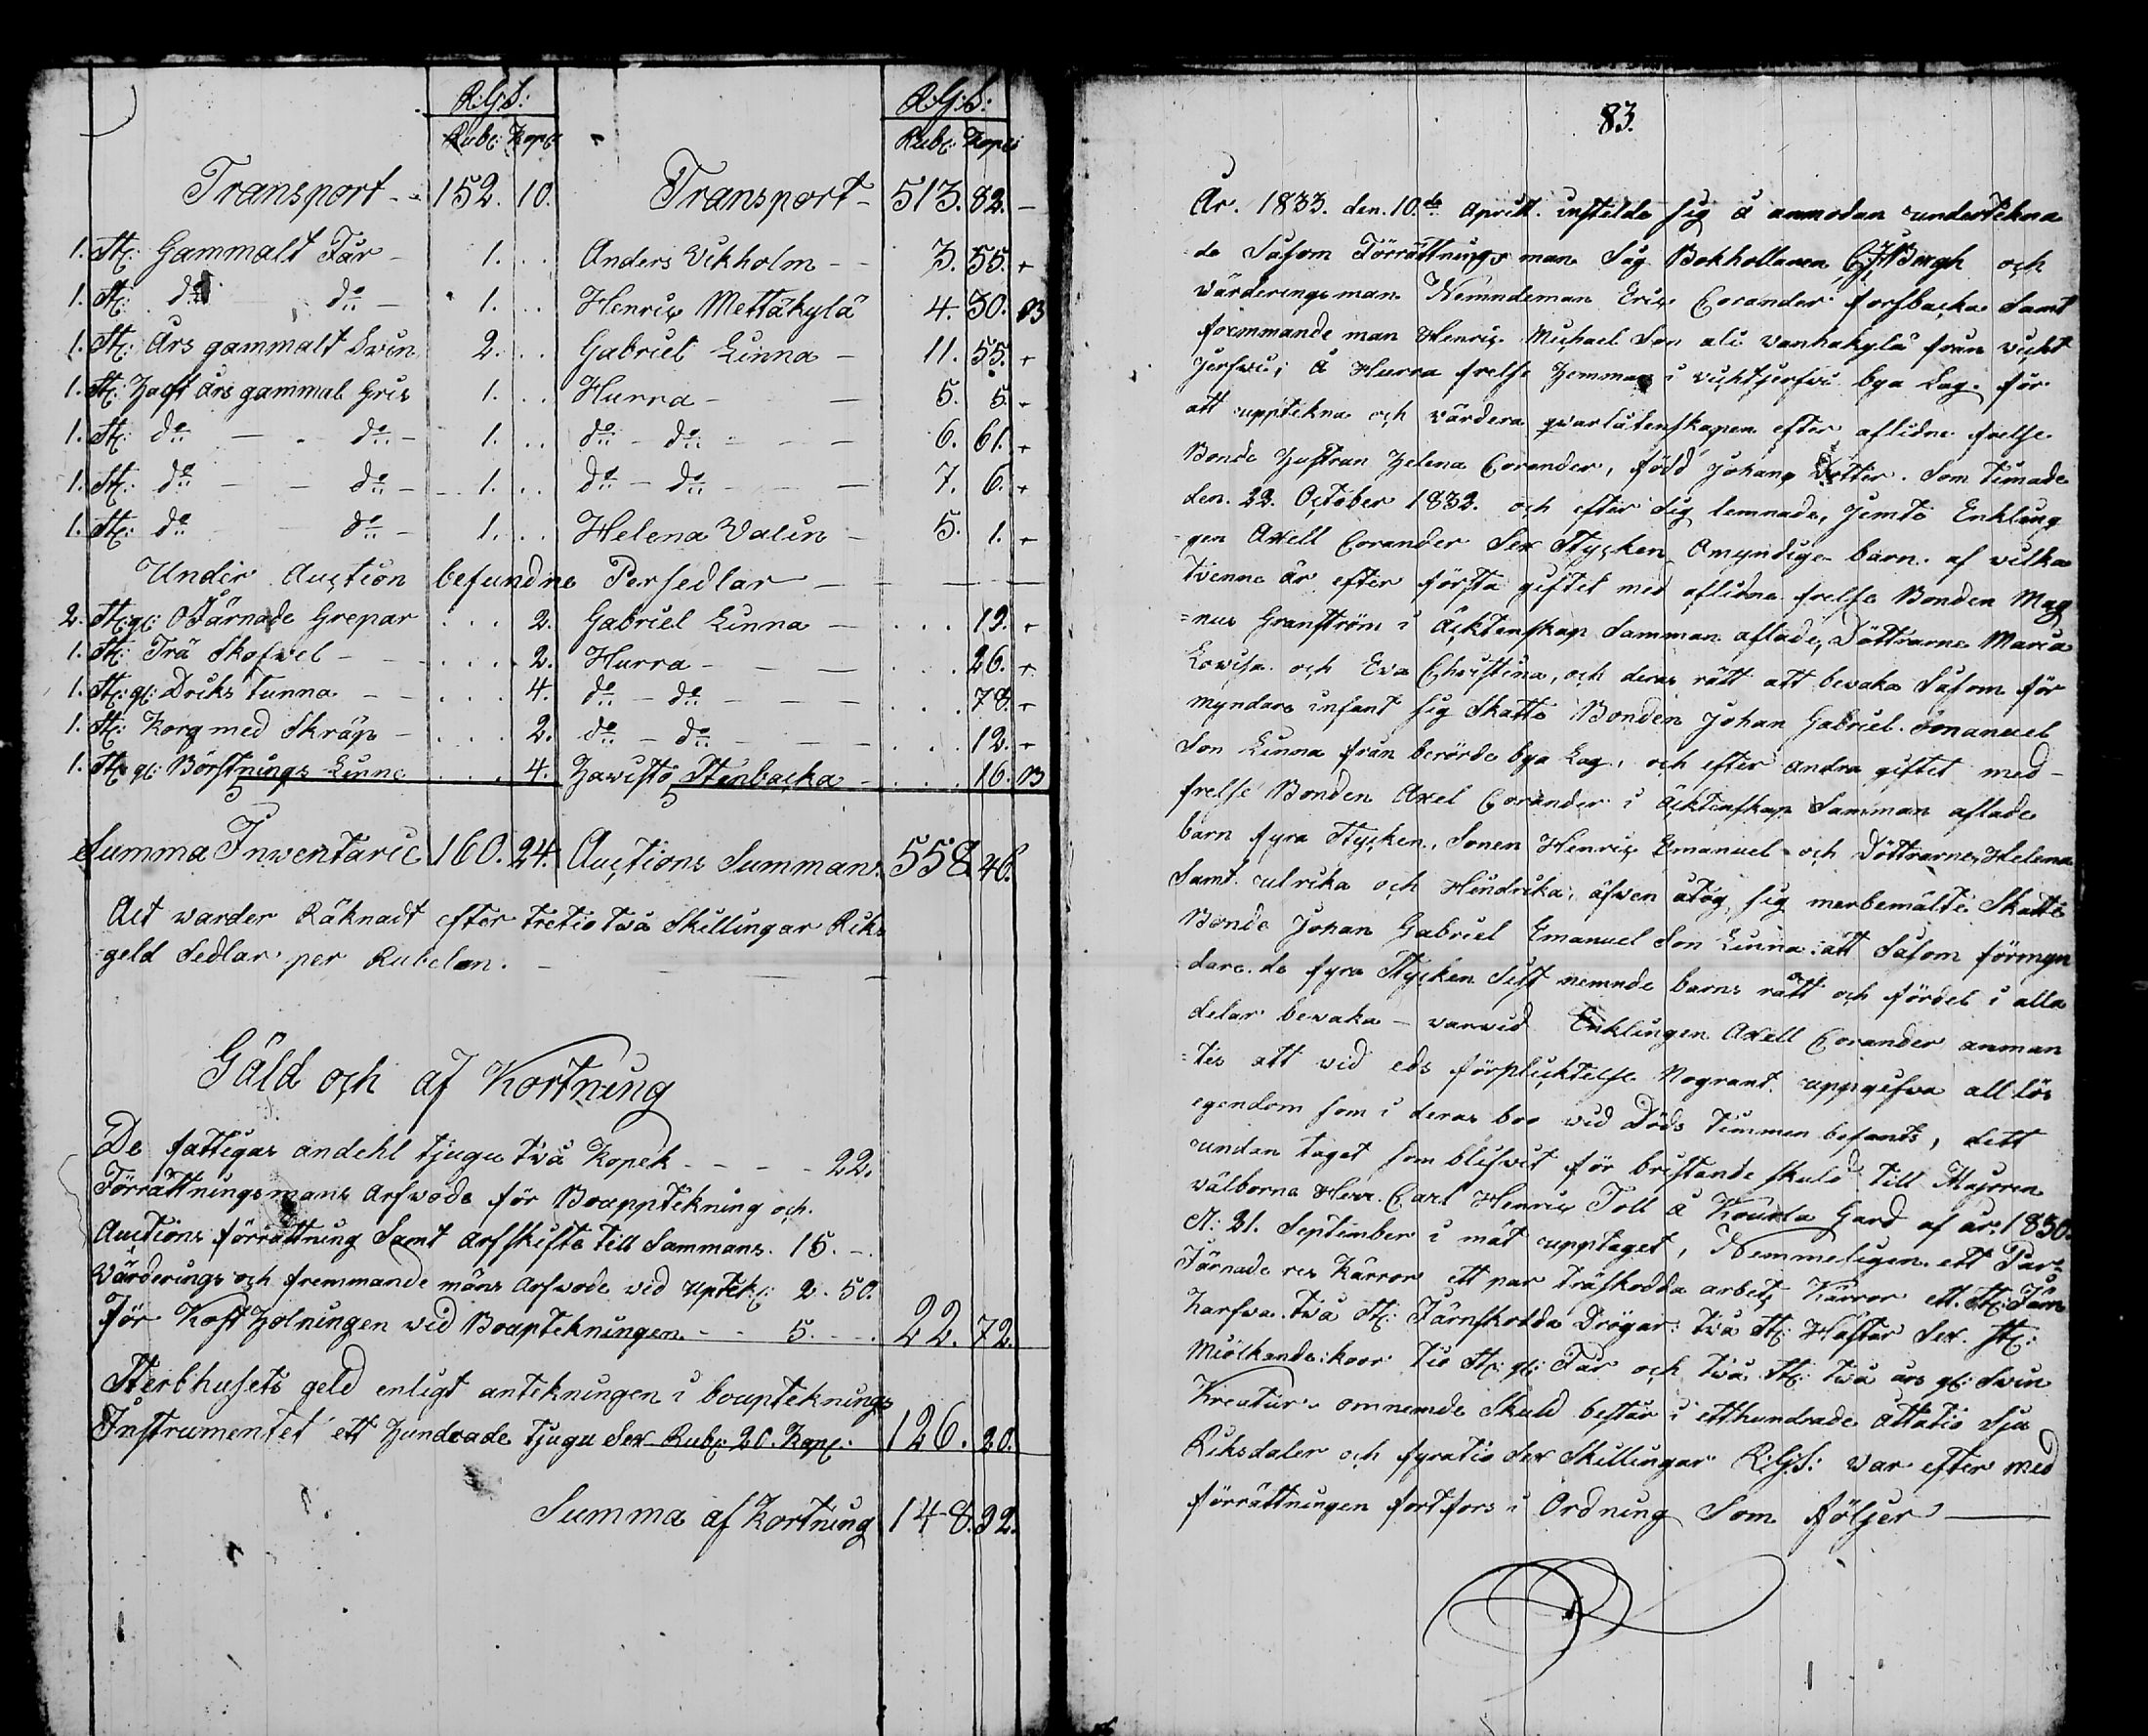 R:G:S: R:G:S:
Rub: Kop: Rub: Kop:
Transport - - 152. 10. Transport - 513. 82. -
1. St: Gammalt Får - 1. . . Anders Wikholm - - 3. 55. +
1. St: do do - 1. . . Henric Mettäkylä 4. 50. B
1. St: Års gammalt Swin 2. . . Gabriel Linna - 11. 55. +
1. St: Halft års gammal Gris 1. . . Hurra - - 5. 5. -
1. St: do - do - 1. . . do - do - - - 6. 61. +
1. St: do - - do - 1. . . do - do - - - 7. 6. +
1. St: do - do - 1. . . Helena Valin - 5. 1. +
Under Auction befundne Persedlar - - - -
2. St: gl: Järnade Grepar . . . 2. Gabriel Linna - . . . 12. +
1. St: Trä Skofwel - - . . . 2. Hurra - - - . . . 26. +
1. St: gl: Driks Tunna - - . . . 4. do - do - - - . . . 78. +
1. St: Korg med Skräp - . . . 2. do - do - - - . . . 12. +
1. St: gl: Börstnings Linne . . . 4. Hawisto Stenbacka - . . . 16. B
Summa Inwentarie 160. 24. Auctions Summan. 558 46.
Alt warder Räknadt efter tretio två Skillingar Riks
=geld Sedlar per Rubelen. -
Gäld och af Kortning
De fattigas andehl tjugu två Kopek - - - - 22.
Förrättningsmans Arfwode för Bouppteckning och
Auctions förrättning Samt arfskifte till Sammans. 15. -
Värderings och fremmande mäns Arfwode vid uptek: 2. 50.
För Kost Holningen wid Bouptekningen - - 5. - . 22. 72.
Sterbhusets geld enligt antekningen i bouptecknings
Instrumentet ett Hundrade tjugu Sex Rub: 20. Kop: 126. 20.
Summa af Kortning 148. 92.
83.
År. 1833. den. 10.de Aprill. instelde sig å anmodan undertekna
=de Såsom Förrättnings man Sig Bokhollaren Borgh och
värderingsman Nemndeman Eric Corander forsbacka Samt
fremmande man Henric Michael Son ali vanhakylä från vicht
jerfwi; å Hurra frelse Hemman i vichtjerfwi bya Lag. för
att upptekna och värdera qvarlåtenskapen efter aflidne frelse
Bonde Hustran Helena Corander, född Johans Dotter. Som timade
den. 22. October 1832. och efter sig lemnade, Jemte Enkling
=gen Axell Corander Sex Stycken Omyndige barn. af vilka
tvenne är efter första giftet med aflidne frelse Bonden Mag
=nus Granström i Äcktenskap Samman aflade, Döttrarne Maria
Lowisa och Ewa Christina, och deras rätt att bewaka Såsom för
myndare infant sig Skatte Bonden Johan Gabriel Emanuel
Son Linna från berörde bya Lag, och efter andra giftet med-
frelse Bonden Axel Corander i äcktenskap Samman aflade
barn fyra Stycken, Sonen Henric Emanuel och Döttrarne, Helena
Samt ulrika och Hindrika, äfwen åtog sig merbemälte Skatte
Bonde Johan Gabriel Emanuel Son Linna: att Såsom förmyn
=dare de fyra Stycken sist nemnde barns rätt och fördel i alla
delar bewaka - varwid Enklingen Axell Corander anman
=tes att vid eds förplicktelse Nogrant uppgifwa all lös
egendom som i deras boo vid Döds timmen befants, dett
undan taget som blifwit för bristande skuld till Majoren
välborne Herr. Carl Henric Toll å Kourla Gard af år. 1830.
d: 21. September i mät upptaget, Nemmeligen. ett Par-
Järnade res Kärror ett par träskodda arbets Kärror ett. St: Järn
Harfwa. två St: Järnskodda Drögar: två St: Hästar Sex. St:
Miölkande: koor tio St: gl: Får och två St: två års gl: Swin
Kreatur. omnemde Skuld består i etthundrade åttatio Sju
Riksdaler och fyratio Sex Skillingar R:G:S: var efter med
förrättningen fortfors i Ordning Som följer -